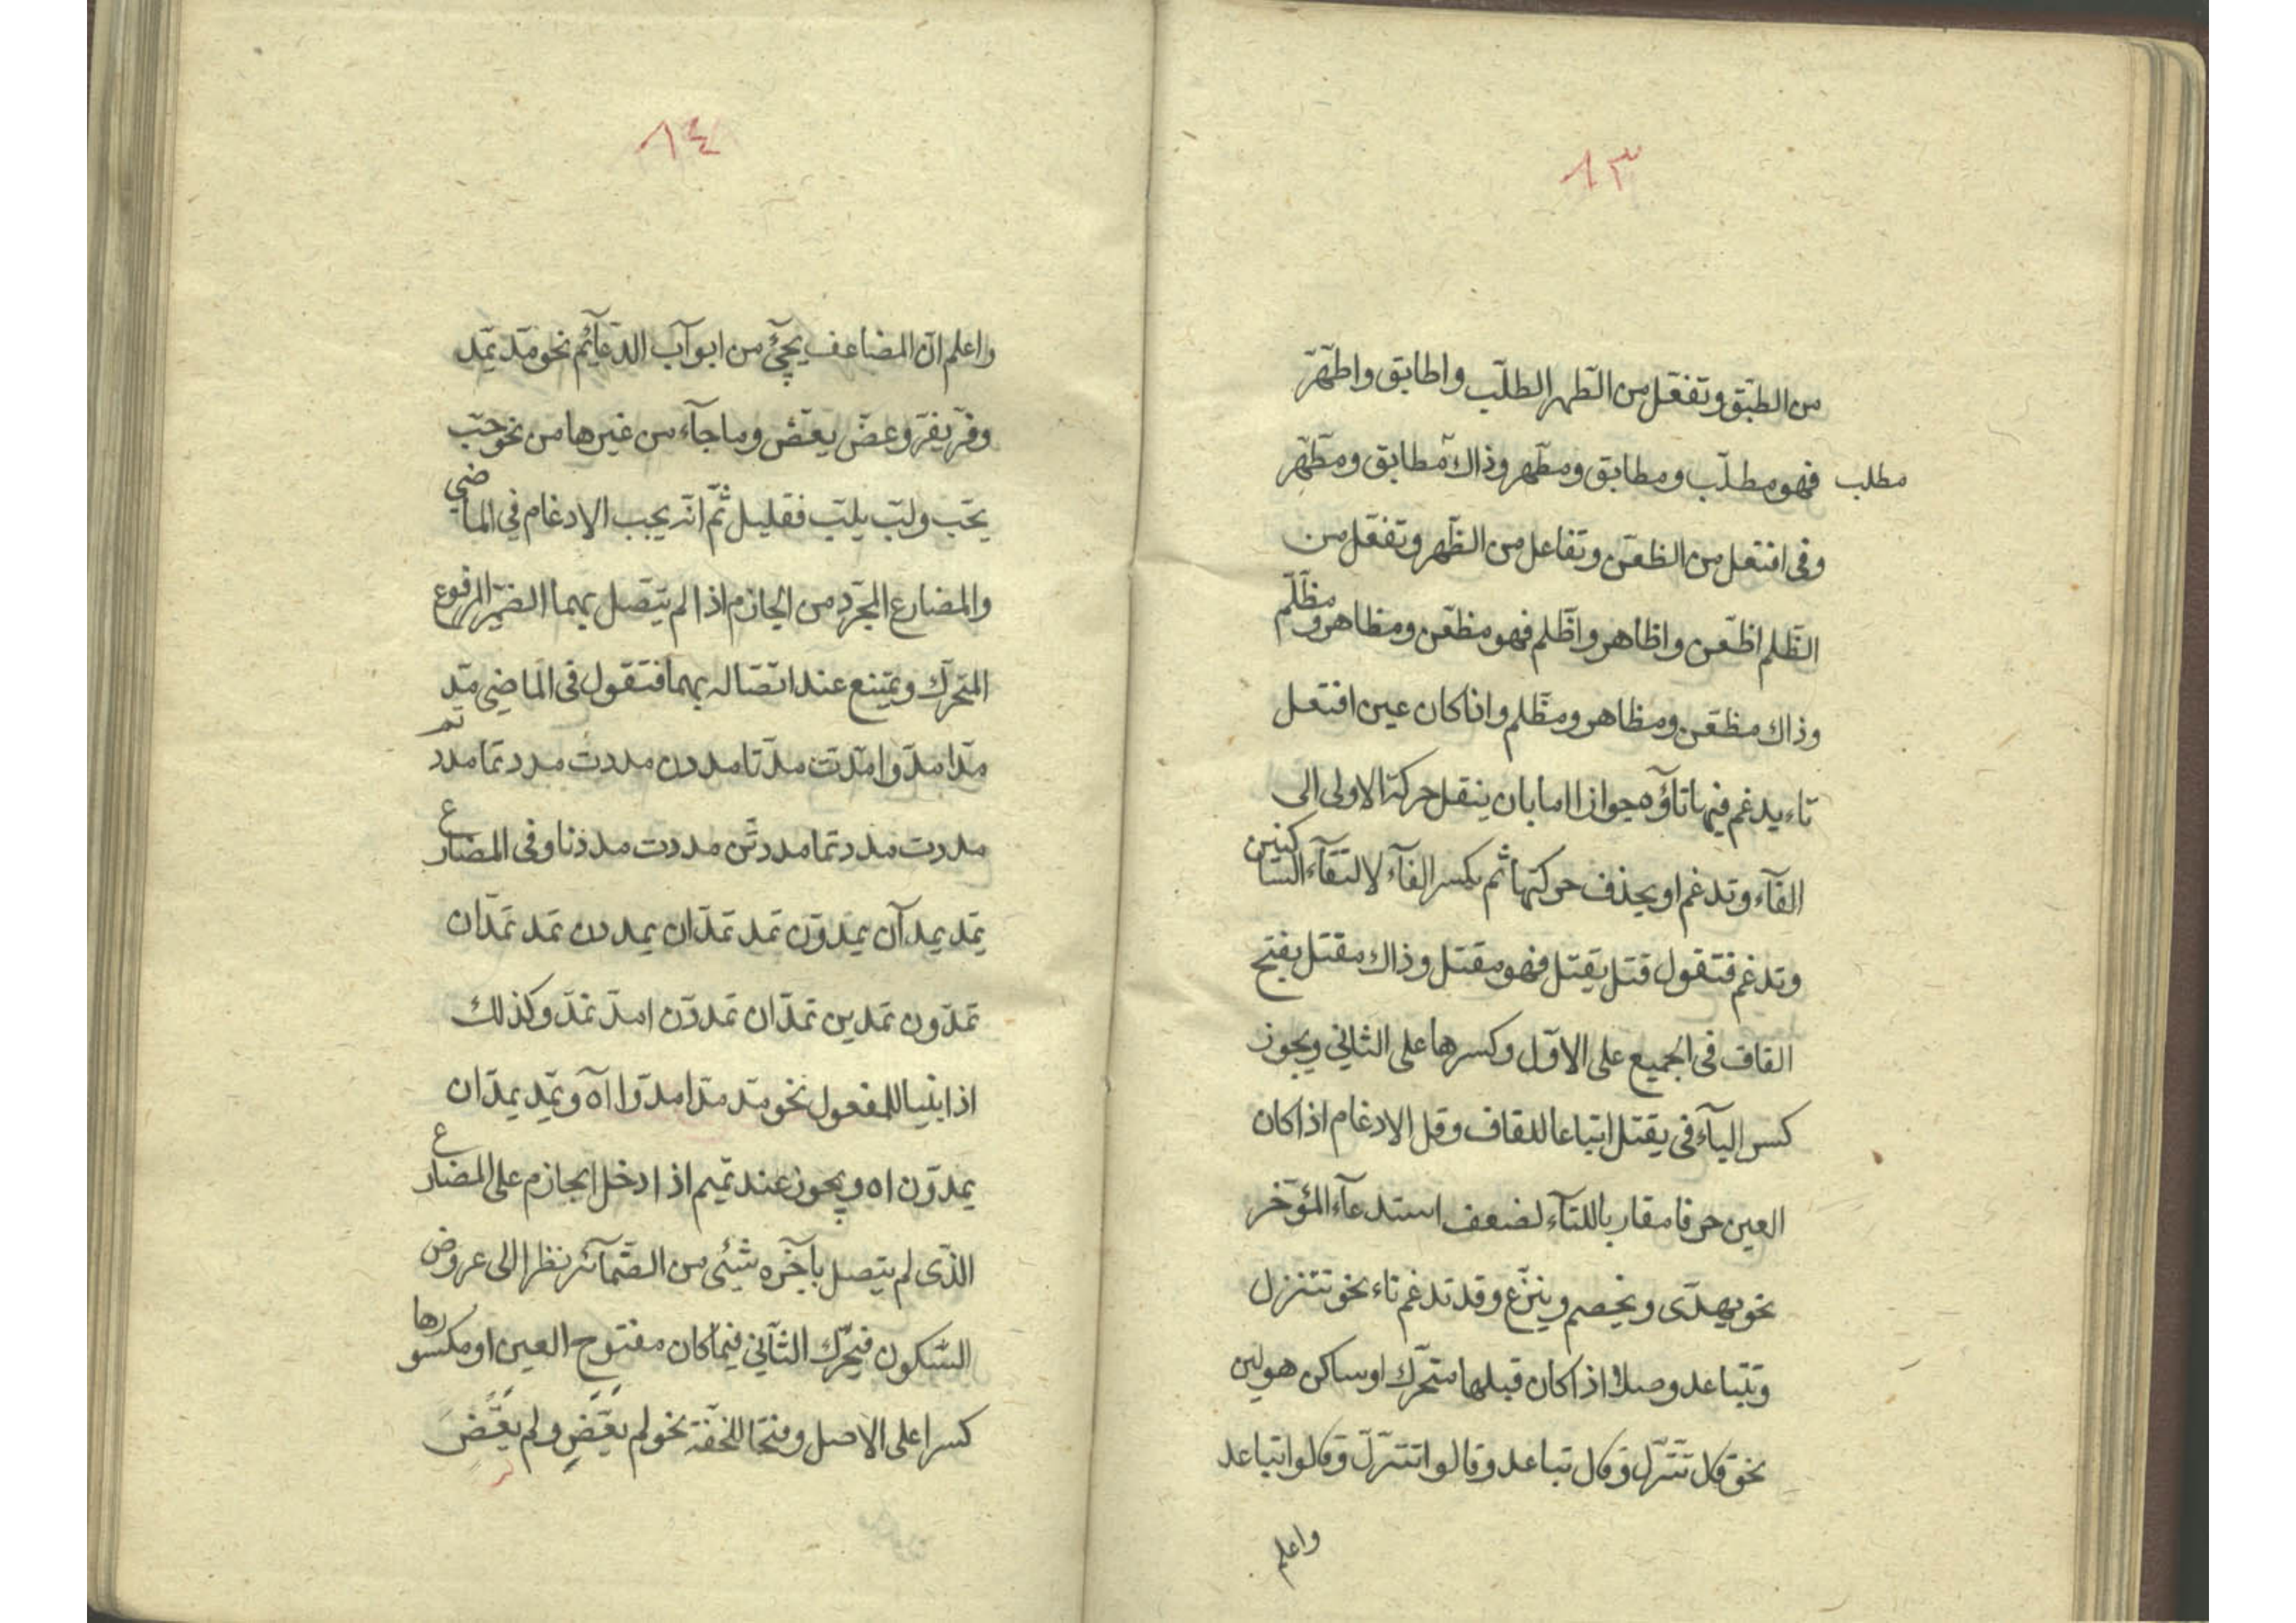 ٨٣
من الطبّق وتفعّل من الطّهر الطلّب واطابق واطهّر
مطلب فهو مطلّب ومطابق ومطّهر وذاك مطابق ومطّهر
وفى افتعل من الظعن وتفاعل من الظّهر وتفعّل من
الظّلم اظّعن واظاهر واظّلم فهو مظّعن ومظاهر ومظّلّم
وذاك مظّعن ومظاهر ومظّلم واذا كان عين افتعل
تاء يدغم فيها تاؤه جوازا اما بان ينقل حركة الاولى الى
الفآء وتدغم او يحذف حركتها ثم يكسر الفآء لالتقآء الساكنين
وتدغم فتقول قتل يقتل فهو مقتل وذاك مقتل بفتح
القاف فى الجميع على الاوّل وكسرها على الثانى ويجوز
كسر اليآء فى يقتل اتباعا للقاف وقل الادغام اذا كان
العين حرفا مقاربا للتآء لضعف استدعآء المؤخر
نحو يهدّى ويخصم وينزّع وقد تدغم تاء نحو تتنزل
وتتباعد وصلا اذا كان قبلها متحرّك او ساكن هو لين
نحو قل تتنزّل وقال تباعد وقالوا تتنزّل وقالوا تباعد
واعلم
٨٤
واعلم انّ المضاعف يجئ من ابوآب الدّعآئم نحو مدّ يمدّ
وفرّ يفرّ وعضّ يعضّ وما جآء من غيرها من نحو حبّ
يحبّ ولبّ يلبّ فقليل ثمّ انّه يجب الادغام فى الماضي
والمضارع المجرّد من الجازم اذا لم يتّصل بهما الضمير المرفوع
المتحرّك ويمتنع عند اتّصاله بهما فتقول فى الماضى مدّ
مدّا مدّوا مدّت مدّتا مددن مددت مددتما مددتم
مددت مددتما مددتنّ مددت مددنا وفى المضارع
يمّد يمدآن يمدّون تمد تمدّان يمددن تمد تمدّان
تمدّون تمدين تمدّان تمددن امدّ نمدّ وكذلك
اذا بنيا للمفعول نحو مدّ مدّا مدّوا اه ويمّد يمدّان
يمدّون اه ويجوز عند تميم اذا ادخل الجازم على المضارع
الذّى لم يتصل بآخره شئ من الضّمآئر نظرا الى عروض
السّكون فيحرّك الثاني فيما كان مفتوح العين او مكسورها
كسرا على الاصل وفتحا للخفّة نحو لم يعَضِّ ولم يعَضَّ